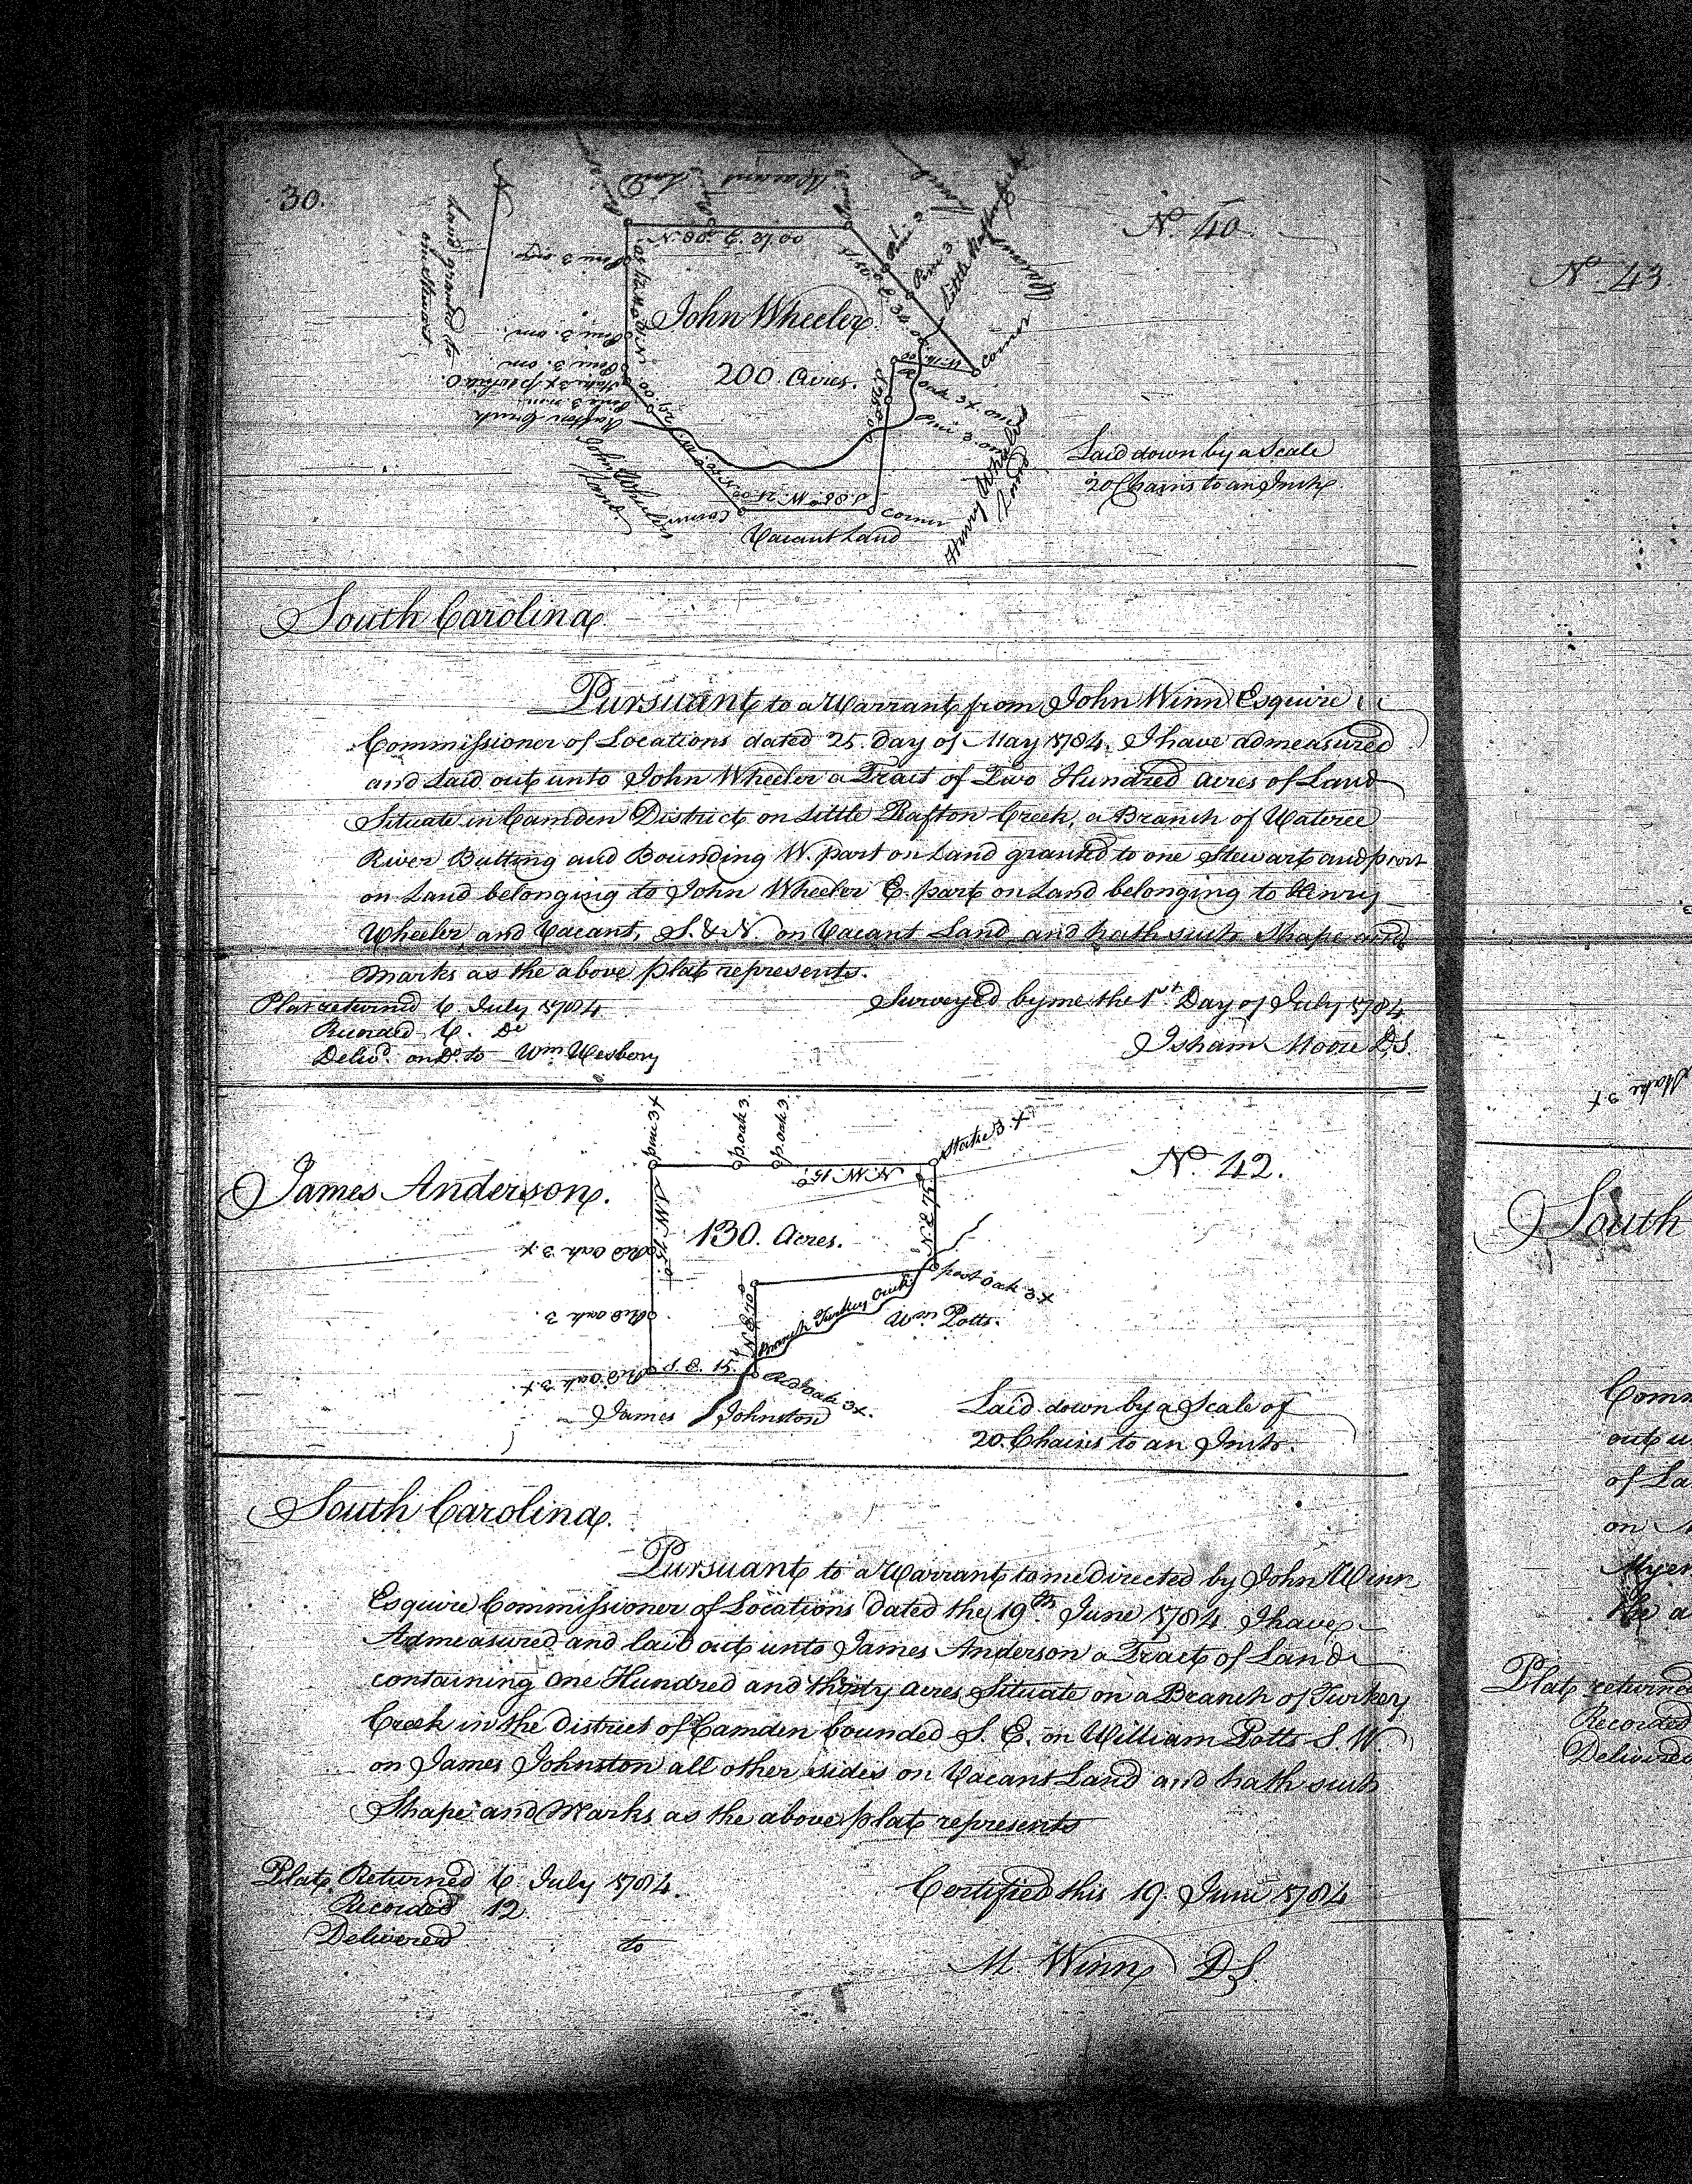 30.
Vacant Land
Nº 40
Land granted to
one Stewart
N. 80. E. 37.00
Pine 3
Pine 3.
John Wheeler
200. Acres.
Pine 3. om
Corner
Henry Wheeler
Land
John Wheelers
Land.
S. 86. W. 21.00
corner
Vacant Land
Laid down by a Scale
20 Chains to an Inch.
South Carolina
Pursuant to a Warrant from John Winn Esquire
Commissioner of Locations dated 25. day of May 1784. I have admeasured
and Laid out unto John Wheeler a Tract of Two Hundred acres of Land
Situate in Camden District on Little Rafton Creek, a Branch of Wateree
River Butting and Bounding W. part on Land granted to one Stewart and part
on Land belonging to John Wheeler E. part on Land belonging to Henry
Wheeler, and Vacant, S. & N. on Vacant Land and hath such Shape and
marks as the above plat represents.
Plat returned 6 July 1784
Recorded 6. Do
Delivd. on Do. to Wm Wesbery
Surveyed by me the 1st Day of July 1784
Isham Moore D.S
pine 3 x
p. oak 3
p. oak 3
Stake 3. x
Nº 42.
James Anderson.
N. W. 15.
130. Acres.
Red Oak 3 x
post Oak 3 x
Branch Turkey Creek
Wm Potts.
Red Oak 3.
S. E. 15.
Red Oak 3 x.
Red oak 3 x.
James Johnston
Laid down by a Scale of
20. Chains to an Inch.
South Carolina.
Pursuant to a Warrant to me directed by John Winn
Esquire Commissioner of Locations dated the 19th June 1784. I have
Admeasured and laid out unto James Anderson a Tract of Land
containing One Hundred and thirty acres Situate on a Branch of Turkey
Creek in the district of Camden bounded S. E. on William Potts S. W.
on James Johnston all other sides on Vacant Land and hath such
Shape and Marks as the above plat represents
Plat Returned 6 July 1784.
Recorded 12
Delivered to
Certified this 19. June 1784
M. Winn DS
Nº 43.
Stake 3 x
South
Comm
out u
of La
on
Myer
the a
Plat returned
Recorded
Delivered